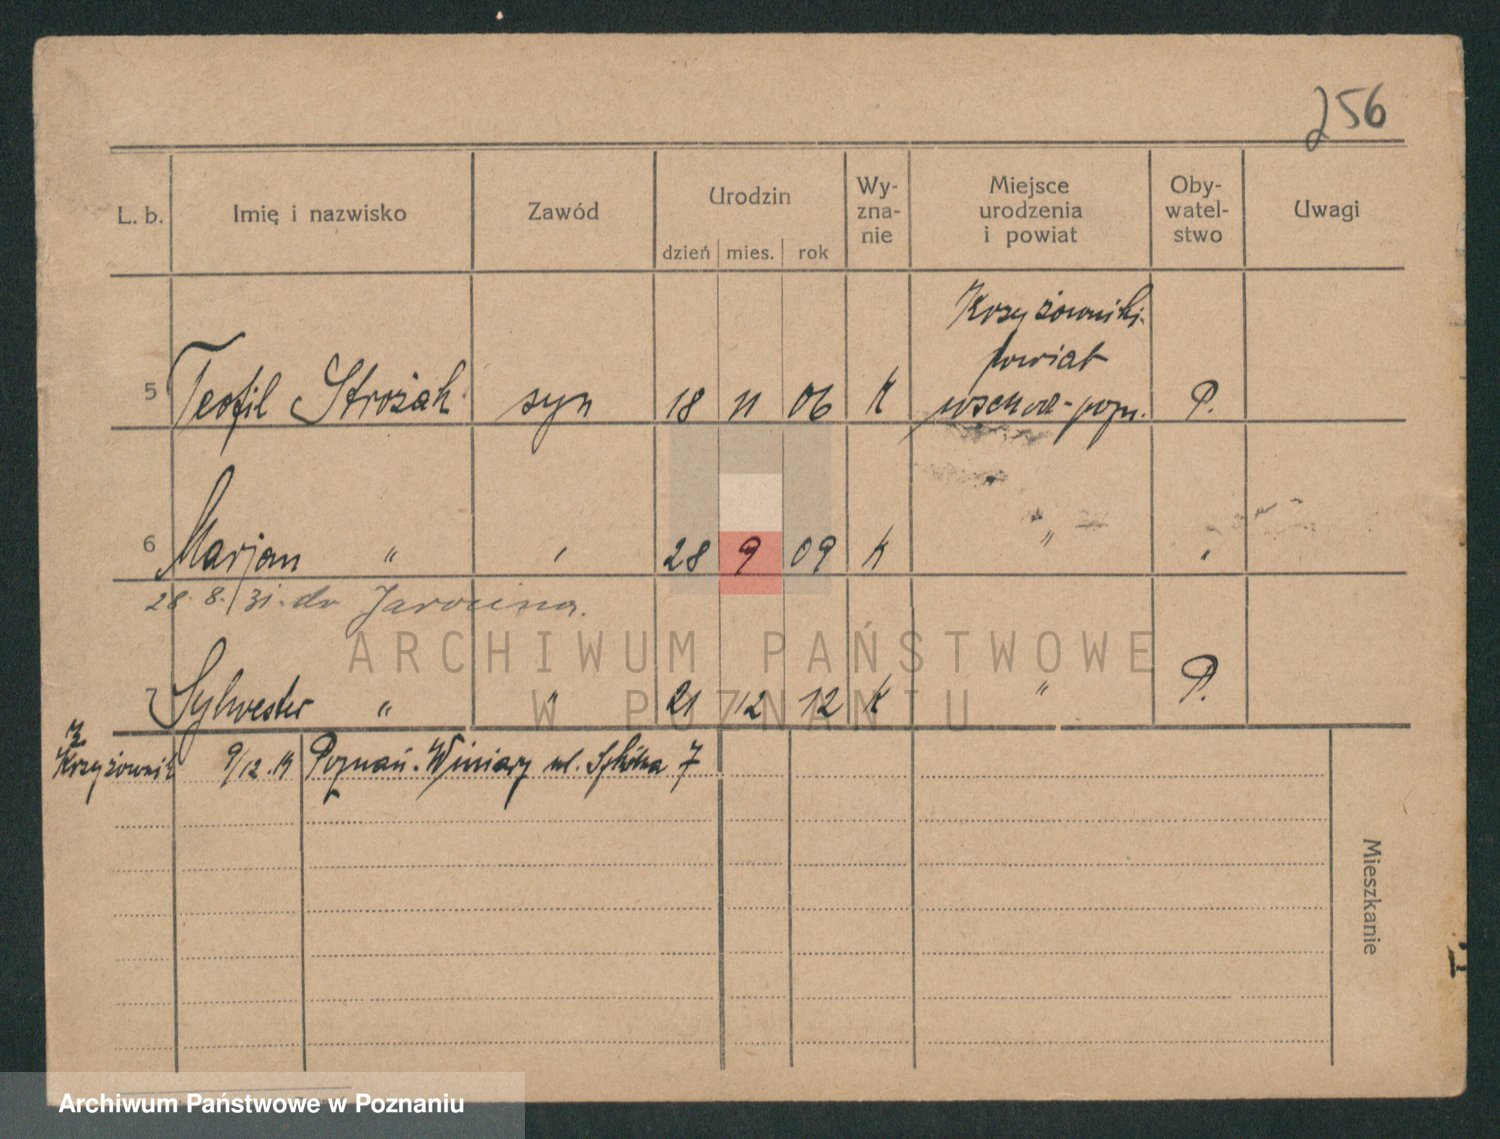 256
L. b. Imię i nazwisko Zawód Urodzin dzień mies. rok Wy-zna-nie Miejsce urodzenia i powiat Oby-watel-stwo Uwagi
Krzyżowniki
powiat
5 Teofil Strożak syn 18 11 06 K wschod-pozn. P.
6 Marjan " " 28 9 09 K " "
28.8.31. do Jarocina.
7 Sylwester " " 21 12 12 K " P.
z
Krzyżownik 9/12. Poznań-Winiary ul. 7
Mieszkanie
ARCHIWUM PAŃSTWOWE
W POZNANIU
Archiwum Państwowe w Poznaniu